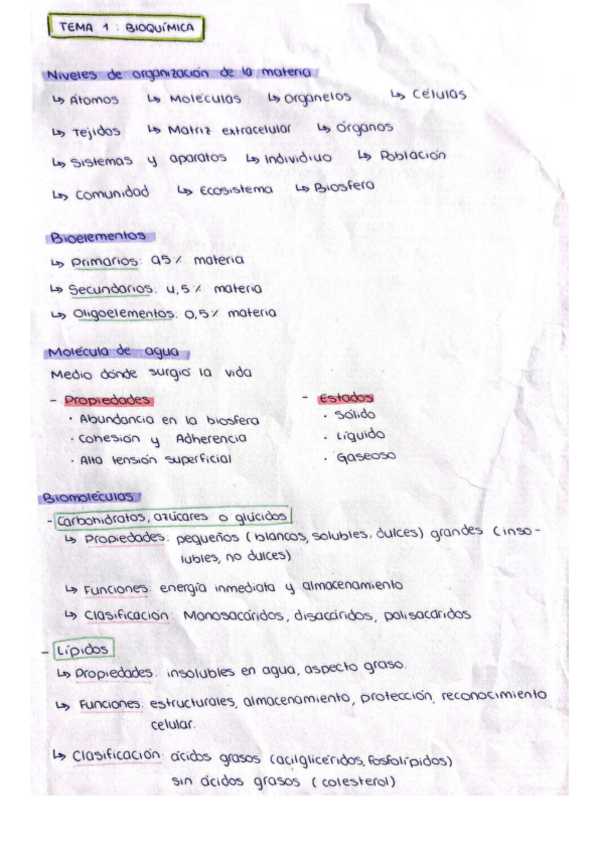 TEMA 1: BIOQUÍMICA
Niveles de organización de la materia
↳ Átomos ↳ Moléculas ↳ Organelos ↳ Células
↳ Tejidos ↳ Matriz extracelular ↳ Órganos
↳ Sistemas y aparatos ↳ Individuo ↳ Población
↳ Comunidad ↳ Ecosistema ↳ Biosfera
Bioelementos
↳ Primarios: 95% materia
↳ Secundarios: 4,5% materia
↳ Oligoelementos: 0,5% materia
Molécula de agua
Medio dónde surgió la vida
- Propiedades - Estados
· Abundancia en la biosfera · Sólido
· Cohesión y Adherencia · Líquido
· Alta tensión superficial · Gaseoso
Biomoléculas
- Carbohidratos, azúcares o glúcidos
↳ Propiedades: pequeños (blancos, solubles, dulces) grandes (inso-
lubles, no dulces)
↳ Funciones: energía inmediata y almacenamiento
↳ Clasificación: Monosacáridos, disacáridos, polisacáridos
- Lípidos
↳ Propiedades: insolubles en agua, aspecto graso.
↳ Funciones: estructurales, almacenamiento, protección, reconocimiento
celular.
↳ Clasificación: ácidos grasos (acilglicéridos, fosfolípidos)
sin ácidos grasos (colesterol)